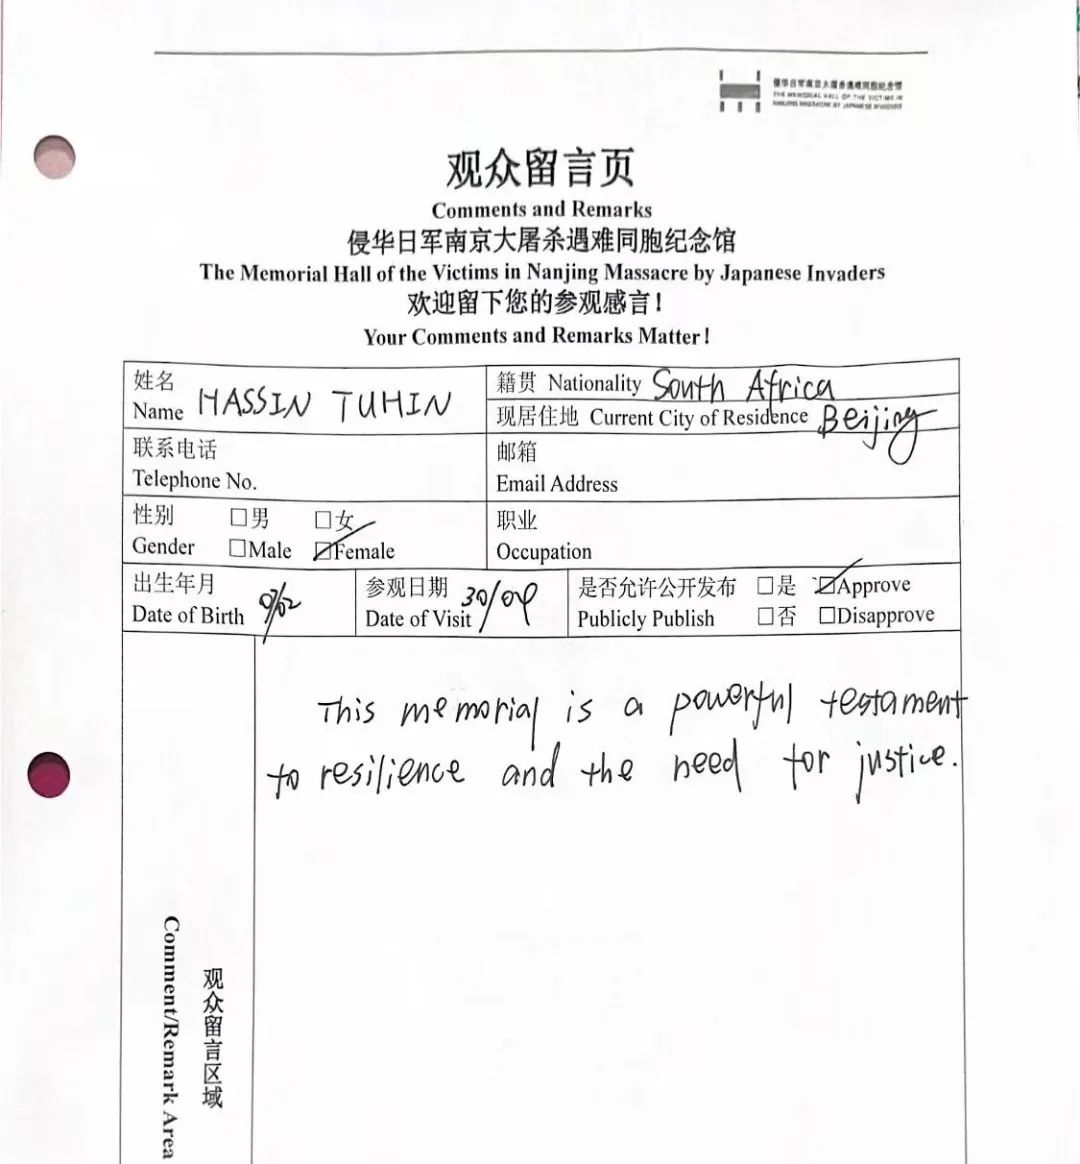 侵华日军南京大屠杀遇难同胞纪念馆
THE MEMORIAL HALL OF THE VICTIMS IN
NANJING MASSACRE BY JAPANESE INVADERS
观众留言页
Comments and Remarks
侵华日军南京大屠杀遇难同胞纪念馆
The Memorial Hall of the Victims in Nanjing Massacre by Japanese Invaders
欢迎留下您的参观感言！
Your Comments and Remarks Matter!
姓名
Name HASSIN TUHIN
籍贯 Nationality South Africa
现居住地 Current City of Residence Beijing
联系电话
Telephone No.
邮箱
Email Address
性别 □男 □女
Gender □Male ☑Female
职业
Occupation
出生年月
Date of Birth
参观日期 30/04
Date of Visit
是否允许公开发布 □是 ☑Approve
Publicly Publish □否 □Disapprove
This memorial is a powerful testament
to resilience and the need for justice.
观众留言区域
Comment/Remark Area